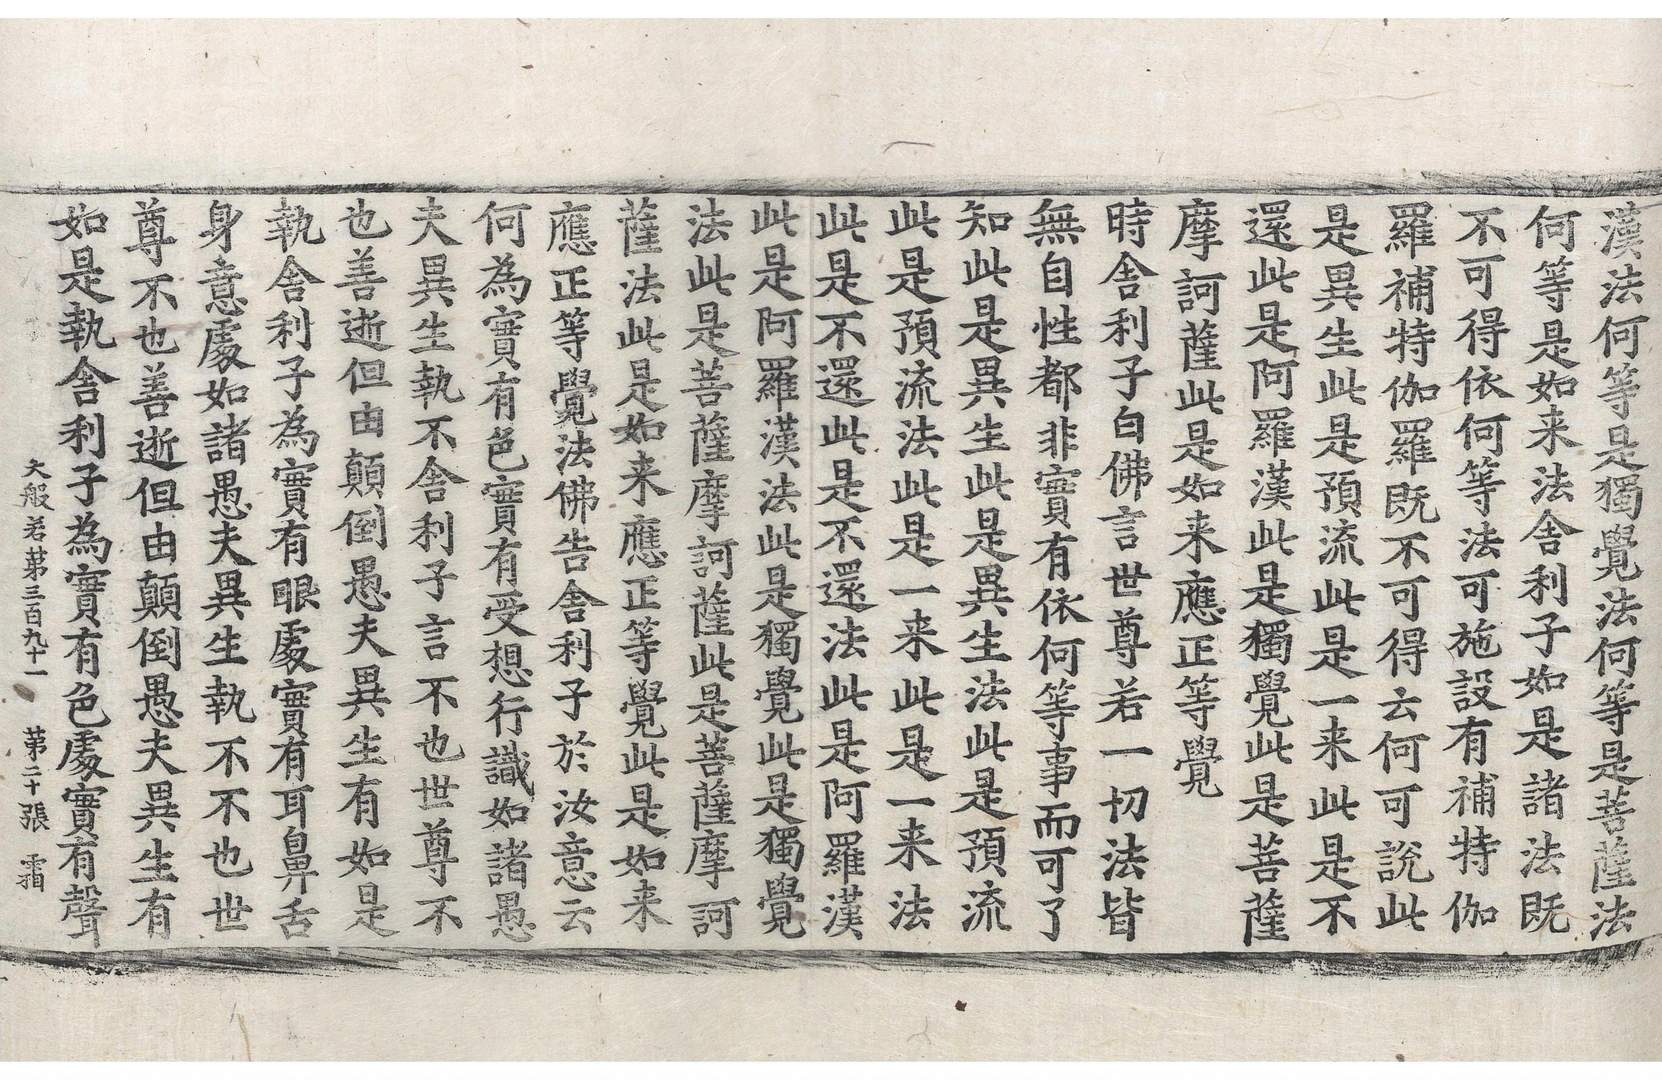 漢法何等是獨覺法何等是菩薩法
何等是如来法舍利子如是諸法既
不可得依何等法可施設有補特伽
羅補特伽羅既不可得云何可說此
是異生此是預流此是一来此是不
還此是阿羅漢此是獨覺此是菩薩
摩訶薩此是如来應正等覺
時舍利子白佛言世尊若一切法皆
無自性都非實有依何等事而可了
知此是異生此是異生法此是預流
此是預流法此是一来此是一来法
此是不還此是不還法此是阿羅漢
此是阿羅漢法此是獨覺此是獨覺
法此是菩薩摩訶薩此是菩薩摩訶
薩法此是如来應正等覺此是如来
應正等覺法佛告舍利子於汝意云
何為實有色實有受想行識如諸愚
夫異生執不舍利子言不也世尊不
也善逝但由顛倒愚夫異生有如是
執舍利子為實有眼處實有耳鼻舌
身意處如諸愚夫異生執不不也世
尊不也善逝但由顛倒愚夫異生有
如是執舍利子為實有色處實有聲
大般若第三百九十一 第二十張 霜